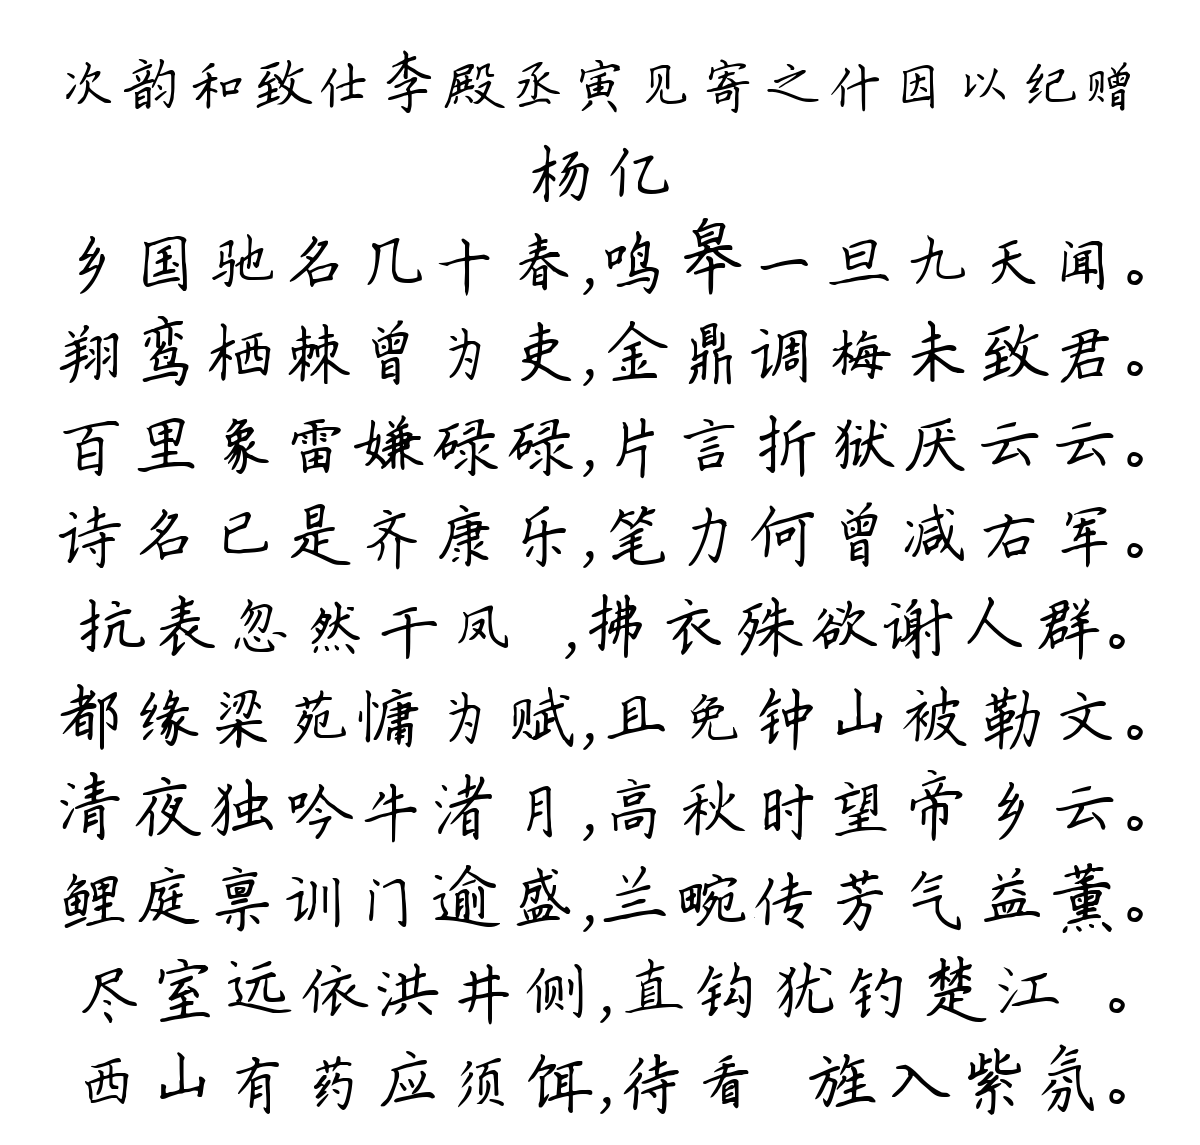 次韵和致仕李殿丞寅见寄之什因以纪赠
杨亿
乡国驰名几十春,鸣皋一旦九天闻。
翔鸾栖棘曾为吏,金鼎调梅未致君。
百里象雷嫌碌碌,片言折狱厌云云。
诗名已是齐康乐,笔力何曾减右军。
抗表忽然干凤 ,拂衣殊欲谢人群。
都缘梁苑慵为赋,且免钟山被勒文。
清夜独吟牛渚月,高秋时望帝乡云。
鲤庭禀训门逾盛,兰畹传芳气益薰。
尽室远依洪井侧,直钩犹钓楚江 。
西山有药应须饵,待看 旌入紫氛。